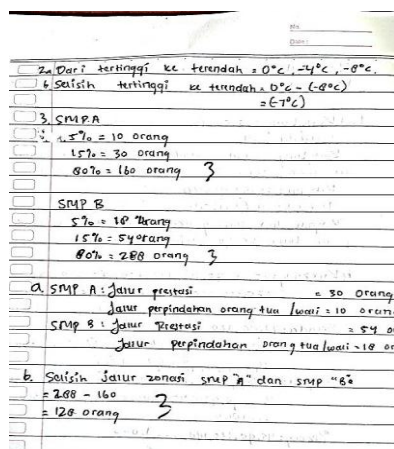 No.
Date:
2a Dari tertinggi ke terendah = 0°C, -4°C, -8°C.
b Selisih tertinggi ke terendah = 0°C - (-8°C)
= (-7°C)
3. SMP.A
5% = 10 orang
15% = 30 orang
80% = 160 orang 3
SMP B
5% = 18 orang
15% = 54 orang
80% = 288 orang 3
a. SMP A : Jalur prestasi = 30 orang
Jalur perpindahan orang tua / wali = 10 oran
SMP B : Jalur Prestasi = 54 o
Jalur perpindahan orang tua / wali = 18 or
b. Selisih jalur zonasi smp "A" dan smp "B"
= 288 - 160
= 128 orang 3